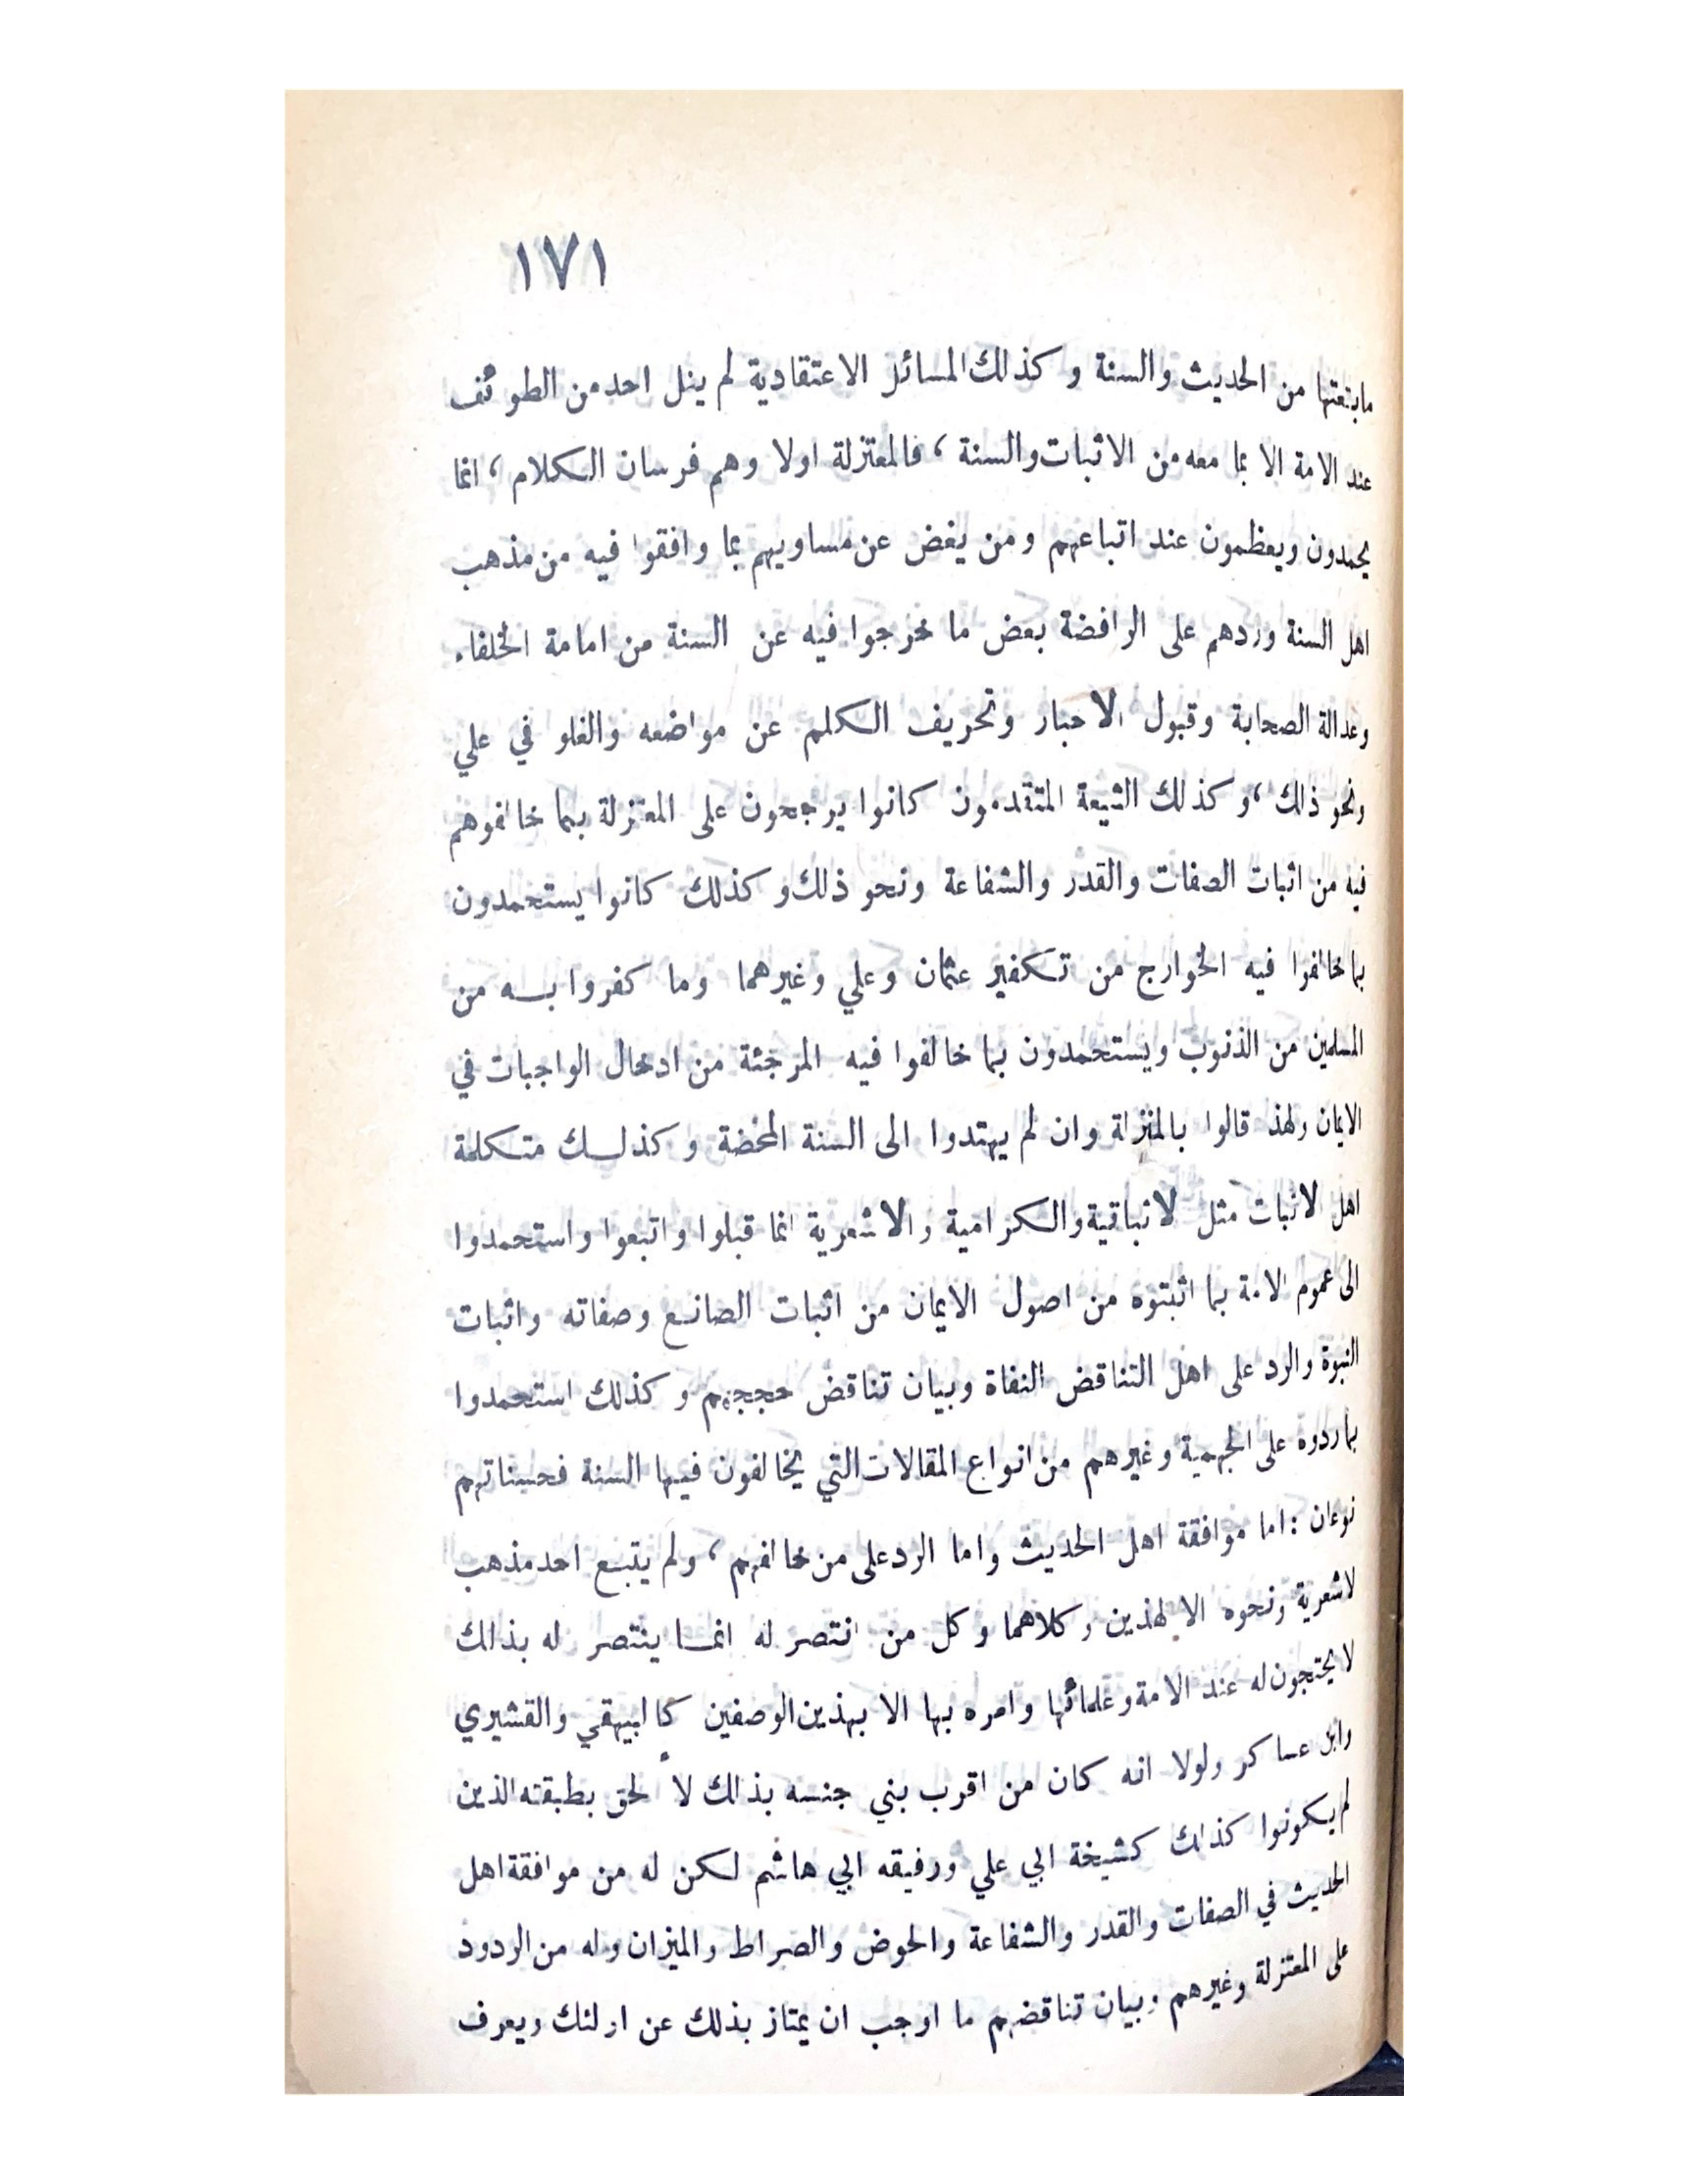 ١٧١
مابتعتها من الحديث والسنة و كذلك المسائل الاعتقادية لم ينل احد من الطوئف
عند الامة الا بما معه من الاثبات والسنة ، فالمعتزلة اولا وهم فرسان الكلام ، انما
يحمدون ويعظمون عند اتباعهم ومن يغض عن مساويهم بما وافقوا فيه من مذهب
اهل السنة وردهم على الرافضة بعض ما خرجوا فيه عن السنة من امامة الخلفاء
وعدالة الصحابة وقبول الاخبار وتحريف الكلم عن مواضعه والغلو في علي
ونحو ذلك ، و كذلك الشيعة المتقدمون كانوا يرجحون على المعتزلة بما خالفوهم
فيه من اثبات الصفات والقدر والشفاعة ونحو ذلك و كذلك كانوا يستحمدون
بما خالفوا فيه الخوارج من تكفير عثمان وعلي وغيرهما وما كفروا به من
المسلمين من الذنوب ويستحمدون بما خالفوا فيه المرجئة من ادخال الواجبات في
الايمان ولهذ قالوا بالمنزلة وان لم يهتدوا الى السنة المحضة و كذلك متكلمة
اهل لاثبات مثل لانباقية والكرامية والاشعرية انما قبلوا واتبعوا واستحمدوا
الى عموم لامة بما اثبتوه من اصول الايمان من اثبات الصانع وصفاته واثبات
النبوة والرد على اهل التناقض النفاة وبيان تناقض حججهم و كذلك استحمدوا
بما ردوه على الجهمية وغيرهم من انواع المقالات التي يخالفون فيها السنة فحسناتهم
نوعان : اما موافقة اهل الحديث واما الرد على من خالفهم ، ولم يتبع احد مذهب
لاشعرية ونحوه الا لهذين وكلاهما وكل من انتصر له انما ينتصر له بذلك
لا يحتجون له عند الامة وعلمائها وامره بها الا بهذين الوصفين كالبيهقي والقشيري
وابن عساكر ولولا انه كان من اقرب بني جنسه بذلك لأ لحق بطبقته الذين
لم يكونوا كذلك كشيخة ابي علي ورفيقه ابي هاشم لكن له من موافقة اهل
الحديث في الصفات والقدر والشفاعة والحوض والصراط والميزان وله من الردود
على المعتزلة وغيرهم وبيان تناقضهم ما اوجب ان يمتاز بذلك عن اولئك ويعرف